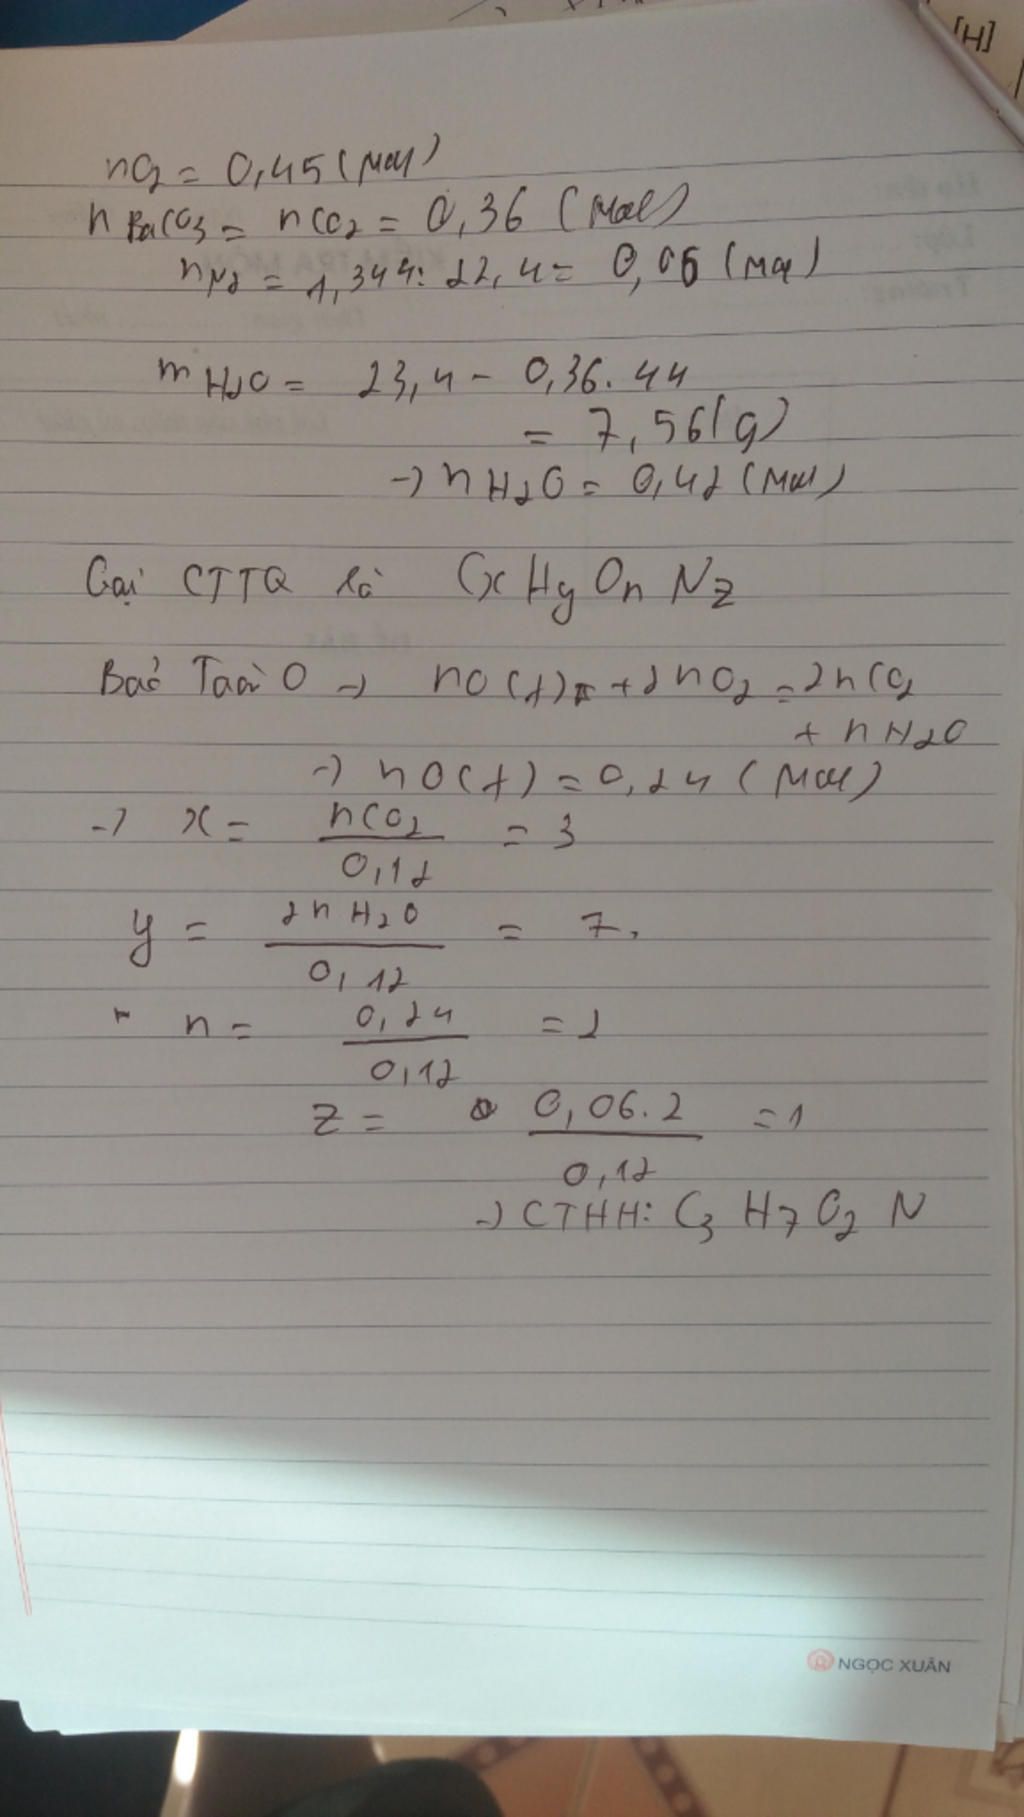 [H]
nO2 = 0,45 (mol)
n BaCO3 = nCO2 = 0,36 (mol)
nN2 = 1,344 : 22,4 = 0,06 (mol)
m H2O = 23,4 - 0,36.44
= 7,56 (g)
→ n H2O = 0,42 (mol)
Gọi CTTQ là Cx Hy On Nz
Bảo Toàn O → nO(t) + 2nO2 = 2nCO2
+ nH2O
→ nO(t) = 0,24 (mol)
→ x = nCO2 / 0,12 = 3
y = 2n H2O / 0,12 = 7,
n = 0,24 / 0,12 = 2
z = 0,06.2 / 0,12 = 1
→ CTHH: C3 H7 O2 N
NGỌC XUÂN